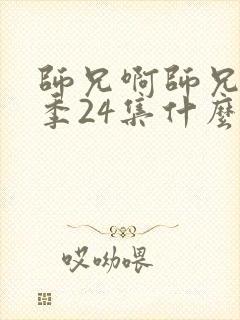 師兄啊師兄
季24集什麼
哎呦喂